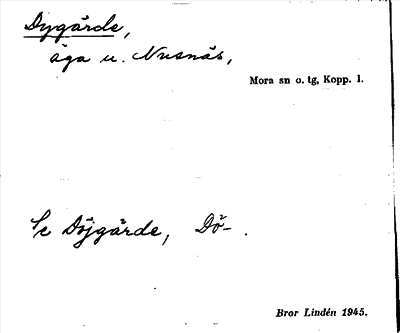 Dygärde,
äga u. Nusnäs,
Mora sn o. tg, Kopp. l.
Se Döjgärde, Dö- .
Bror Lindén 1945.